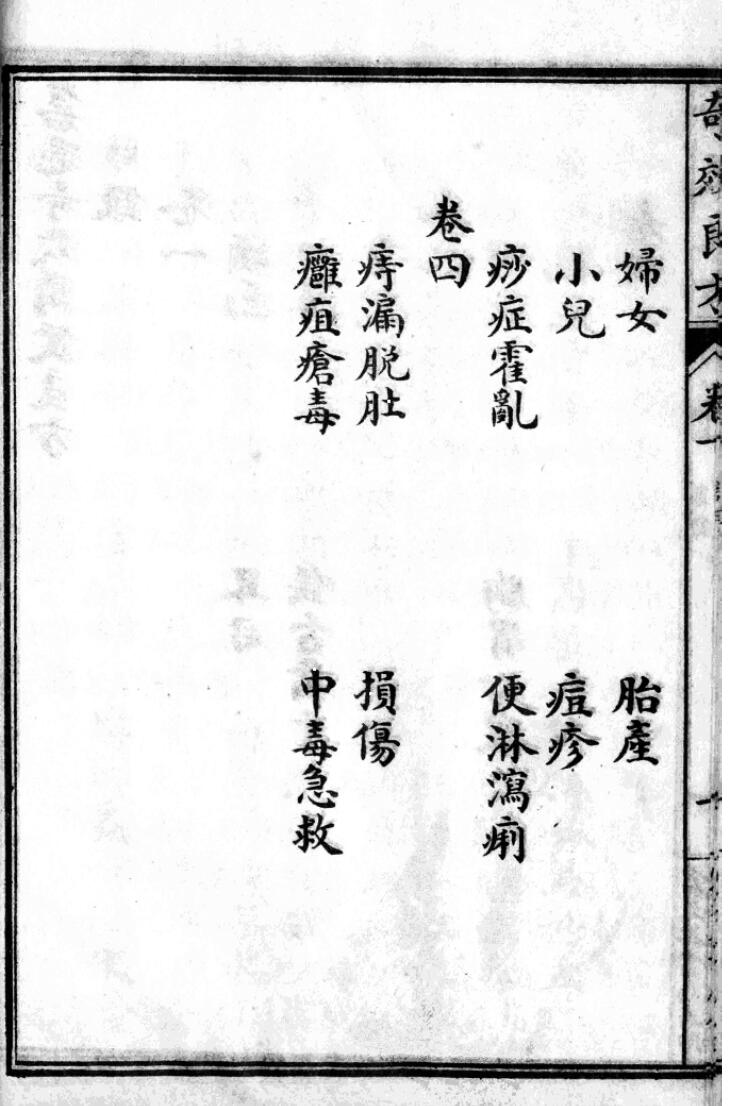 奇效良方
卷一
婦女 胎產
小兒 痘疹
痧症霍亂 便淋瀉痢
卷四
痔漏脫肚 損傷
癰疽瘡毒 中毒急救